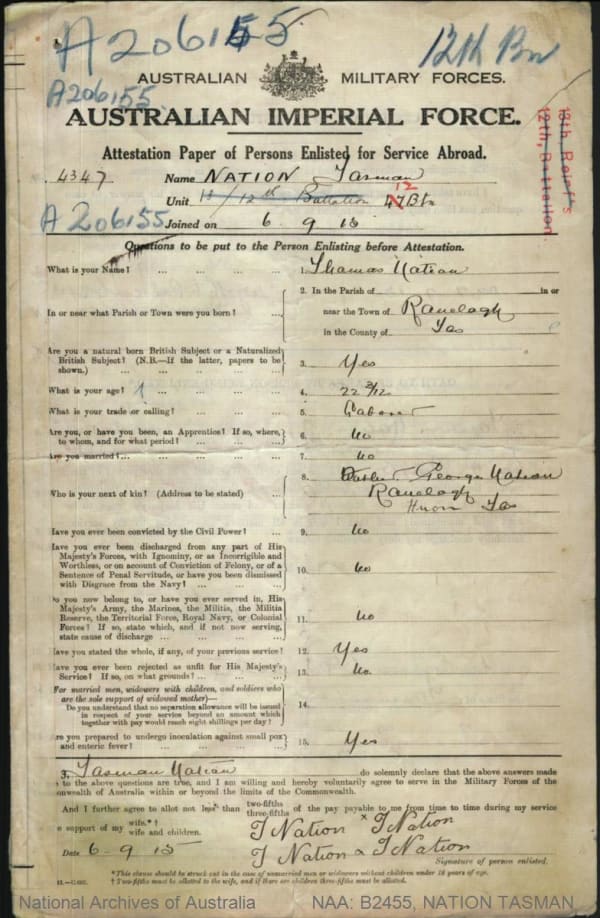 A206155
12th Bn
AUSTRALIAN MILITARY FORCES.
A206155
AUSTRALIAN IMPERIAL FORCE.
Attestation Paper of Persons Enlisted for Service Abroad.
12th, Battalion.
4347 Name NATION Tasman
Unit 12th Battalion 47 12 Btn
A206155
Joined on 6 9 15
Questions to be put to the Person Enlisting before Attestation.
What is your Name? ... ... ... ... 1. Thomas Nation
In or near what Parish or Town were you born? ... 2. In the Parish of in or
near the Town of Ranelagh
in the County of Tas
Are you a natural born British Subject or a Naturalized
British Subject? (N.B.—If the latter, papers to be
shown.) ... ... ... ... ... 3. Yes
What is your age? 4. 22 3/12
What is your trade or calling? ... ... ... 5. Labourer
Are you, or have you been, an Apprentice? If so, where,
to whom, and for what period? ... ... ... 6. No
Are you married?... ... ... ... ... 7. No
Who is your next of kin? (Address to be stated) ... 8. Father George Nation
Ranelagh
Huon Tas
Have you ever been convicted by the Civil Power? ... 9. No
Have you ever been discharged from any part of His
Majesty's Forces, with Ignominy, or as Incorrigible and
Worthless, or on account of Conviction of Felony, or of a
Sentence of Penal Servitude, or have you been dismissed
with Disgrace from the Navy? ... ... ... 10. No
Do you now belong to, or have you ever served in, His
Majesty's Army, the Marines, the Militia, the Militia
Reserve, the Territorial Force, Royal Navy, or Colonial
Forces? If so, state which, and if not now serving,
state cause of discharge ... ... ... ... 11. No
Have you stated the whole, if any, of your previous service? 12. Yes
Have you ever been rejected as unfit for His Majesty's
Service? If so, on what grounds? ... ... ... 13. No.
For married men, widowers with children, and soldiers who
are the sole support of widowed mother)—
Do you understand that no separation allowance will be issued
in respect of your service beyond an amount which
together with pay would reach eight shillings per day? 14.
Are you prepared to undergo inoculation against small pox
and enteric fever? ... ... ... ... 15. Yes
3, Tasman Nation do solemnly declare that the above answers made
to the above questions are true, and I am willing and hereby voluntarily agree to serve in the Military Forces of the
Commonwealth of Australia within or beyond the limits of the Commonwealth.
And I further agree to allot not less than two-fifths
three-fifths of the pay payable to me from time to time during my service
support of my wife.*†
wife and children. T Nation x T Nation
Date 6-9-15 T Nation x T Nation
Signature of person enlisted.
*This clause should be struck out in the case of unmarried men or widowers without children under 18 years of age.
† Two-fifths must be allotted to the wife, and if there are children three-fifths must be allotted.
National Archives of Australia NAA: B2455, NATION TASMAN